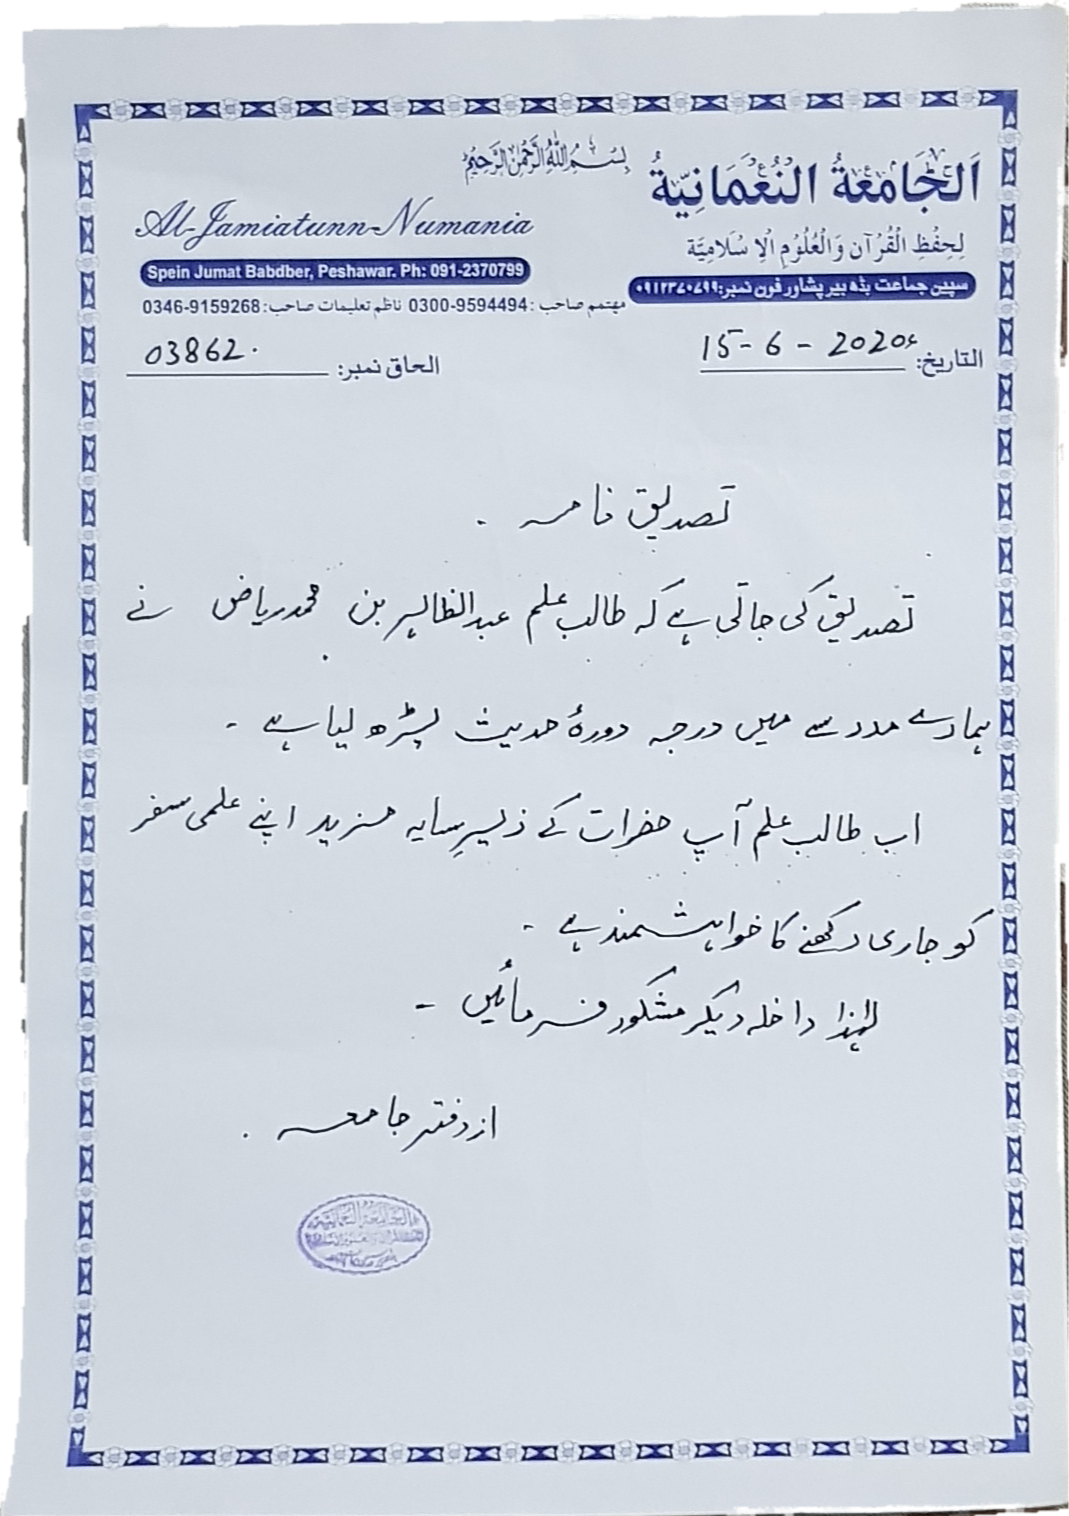 بِسْمِ اللهِ الرَّحْمٰنِ الرَّحِيْمِ
اَلْجَامِعَةُ النُّعْمَانِيَّةُ
Al-Jamiatunn-Numania
لِحِفْظِ الْقُرْآن وَالْعُلُوْمِ الْاِسْلَامِيَّة
Spein Jumat Babdber, Peshawar. Ph: 091-2370799
سپین جماعت بڈھ بیر پشاور فون نمبر:۰۹۱۲۳۷۰۷۹۹
مہتمم صاحب : 0300-9594494 ناظم تعلیمات صاحب: 0346-9159268
التاریخ: 15-6-2020ء
الحاق نمبر: 03862.
تصدیق نامہ .
تصدیق کی جاتی ہے کہ طالب علم عبدالظاہر بن محمد ریاض نے
ہمارے مدرسے میں درجہ دورۂ حدیث پڑھ لیا ہے -
اب طالب علم آپ حضرات کے زیرِسایہ مزید اپنے علمی سفر
کو جاری رکھنے کا خواہشمند ہے -
لہٰذا داخلہ دیکر مشکور فرمائیں -
از دفتر جامعہ .
الجامعة النعمانية